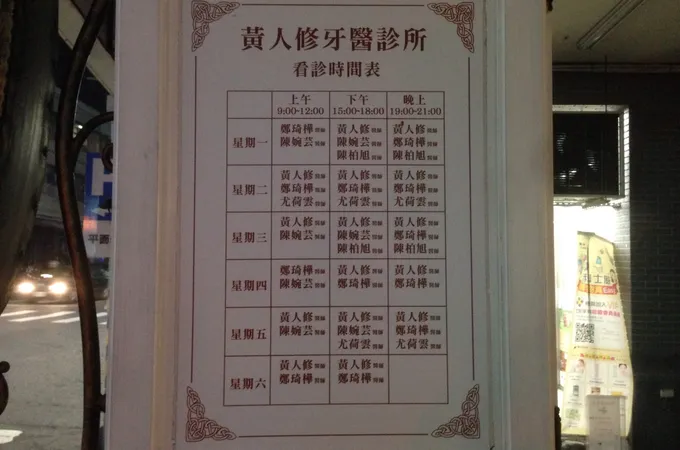 黃人修牙醫診所
看診時間表
上午 下午 晚上
9:00-12:00 15:00-18:00 19:00-21:00
星期一
鄭琦樺醫師 黃人修醫師 黃人修醫師
陳婉芸醫師 陳婉芸醫師 鄭琦樺醫師
陳柏旭醫師 陳柏旭醫師
星期二
黃人修醫師 黃人修醫師 黃人修醫師
鄭琦樺醫師 鄭琦樺醫師 鄭琦樺醫師
尤荷雲醫師 尤荷雲醫師 尤荷雲醫師
星期三
黃人修醫師 黃人修醫師 黃人修醫師
陳婉芸醫師 陳婉芸醫師 鄭琦樺醫師
陳柏旭醫師 陳柏旭醫師
星期四
鄭琦樺醫師 鄭琦樺醫師 黃人修醫師
陳婉芸醫師 陳婉芸醫師 鄭琦樺醫師
星期五
黃人修醫師 黃人修醫師 黃人修醫師
陳婉芸醫師 陳婉芸醫師 鄭琦樺醫師
尤荷雲醫師 尤荷雲醫師
星期六
黃人修醫師 黃人修醫師
鄭琦樺醫師 鄭琦樺醫師
平面